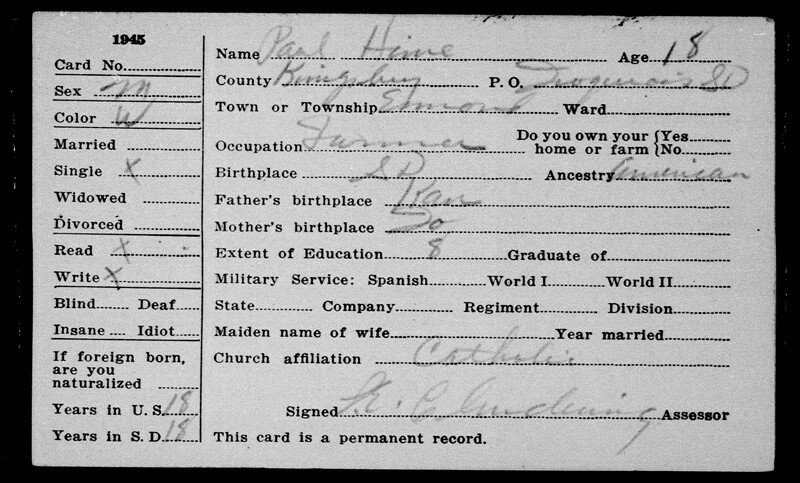 1945
Card No.
Sex M
Color W
Married
Single X
Widowed
Divorced
Read X
Write X
Blind Deaf
Insane Idiot
If foreign born,
are you
naturalized
Years in U. S. 18
Years in S. D. 18
Name Paul Hime Age 18
County Kingsbury P. O. Iroquois SD
Town or Township Esmond Ward
Occupation Farmer Do you own your home or farm { Yes No
Birthplace SD Ancestry American
Father's birthplace Kan
Mother's birthplace
Extent of Education 8 Graduate of
Military Service: Spanish World I World II
State Company Regiment Division
Maiden name of wife Year married
Church affiliation Catholic
Signed Assessor
This card is a permanent record.